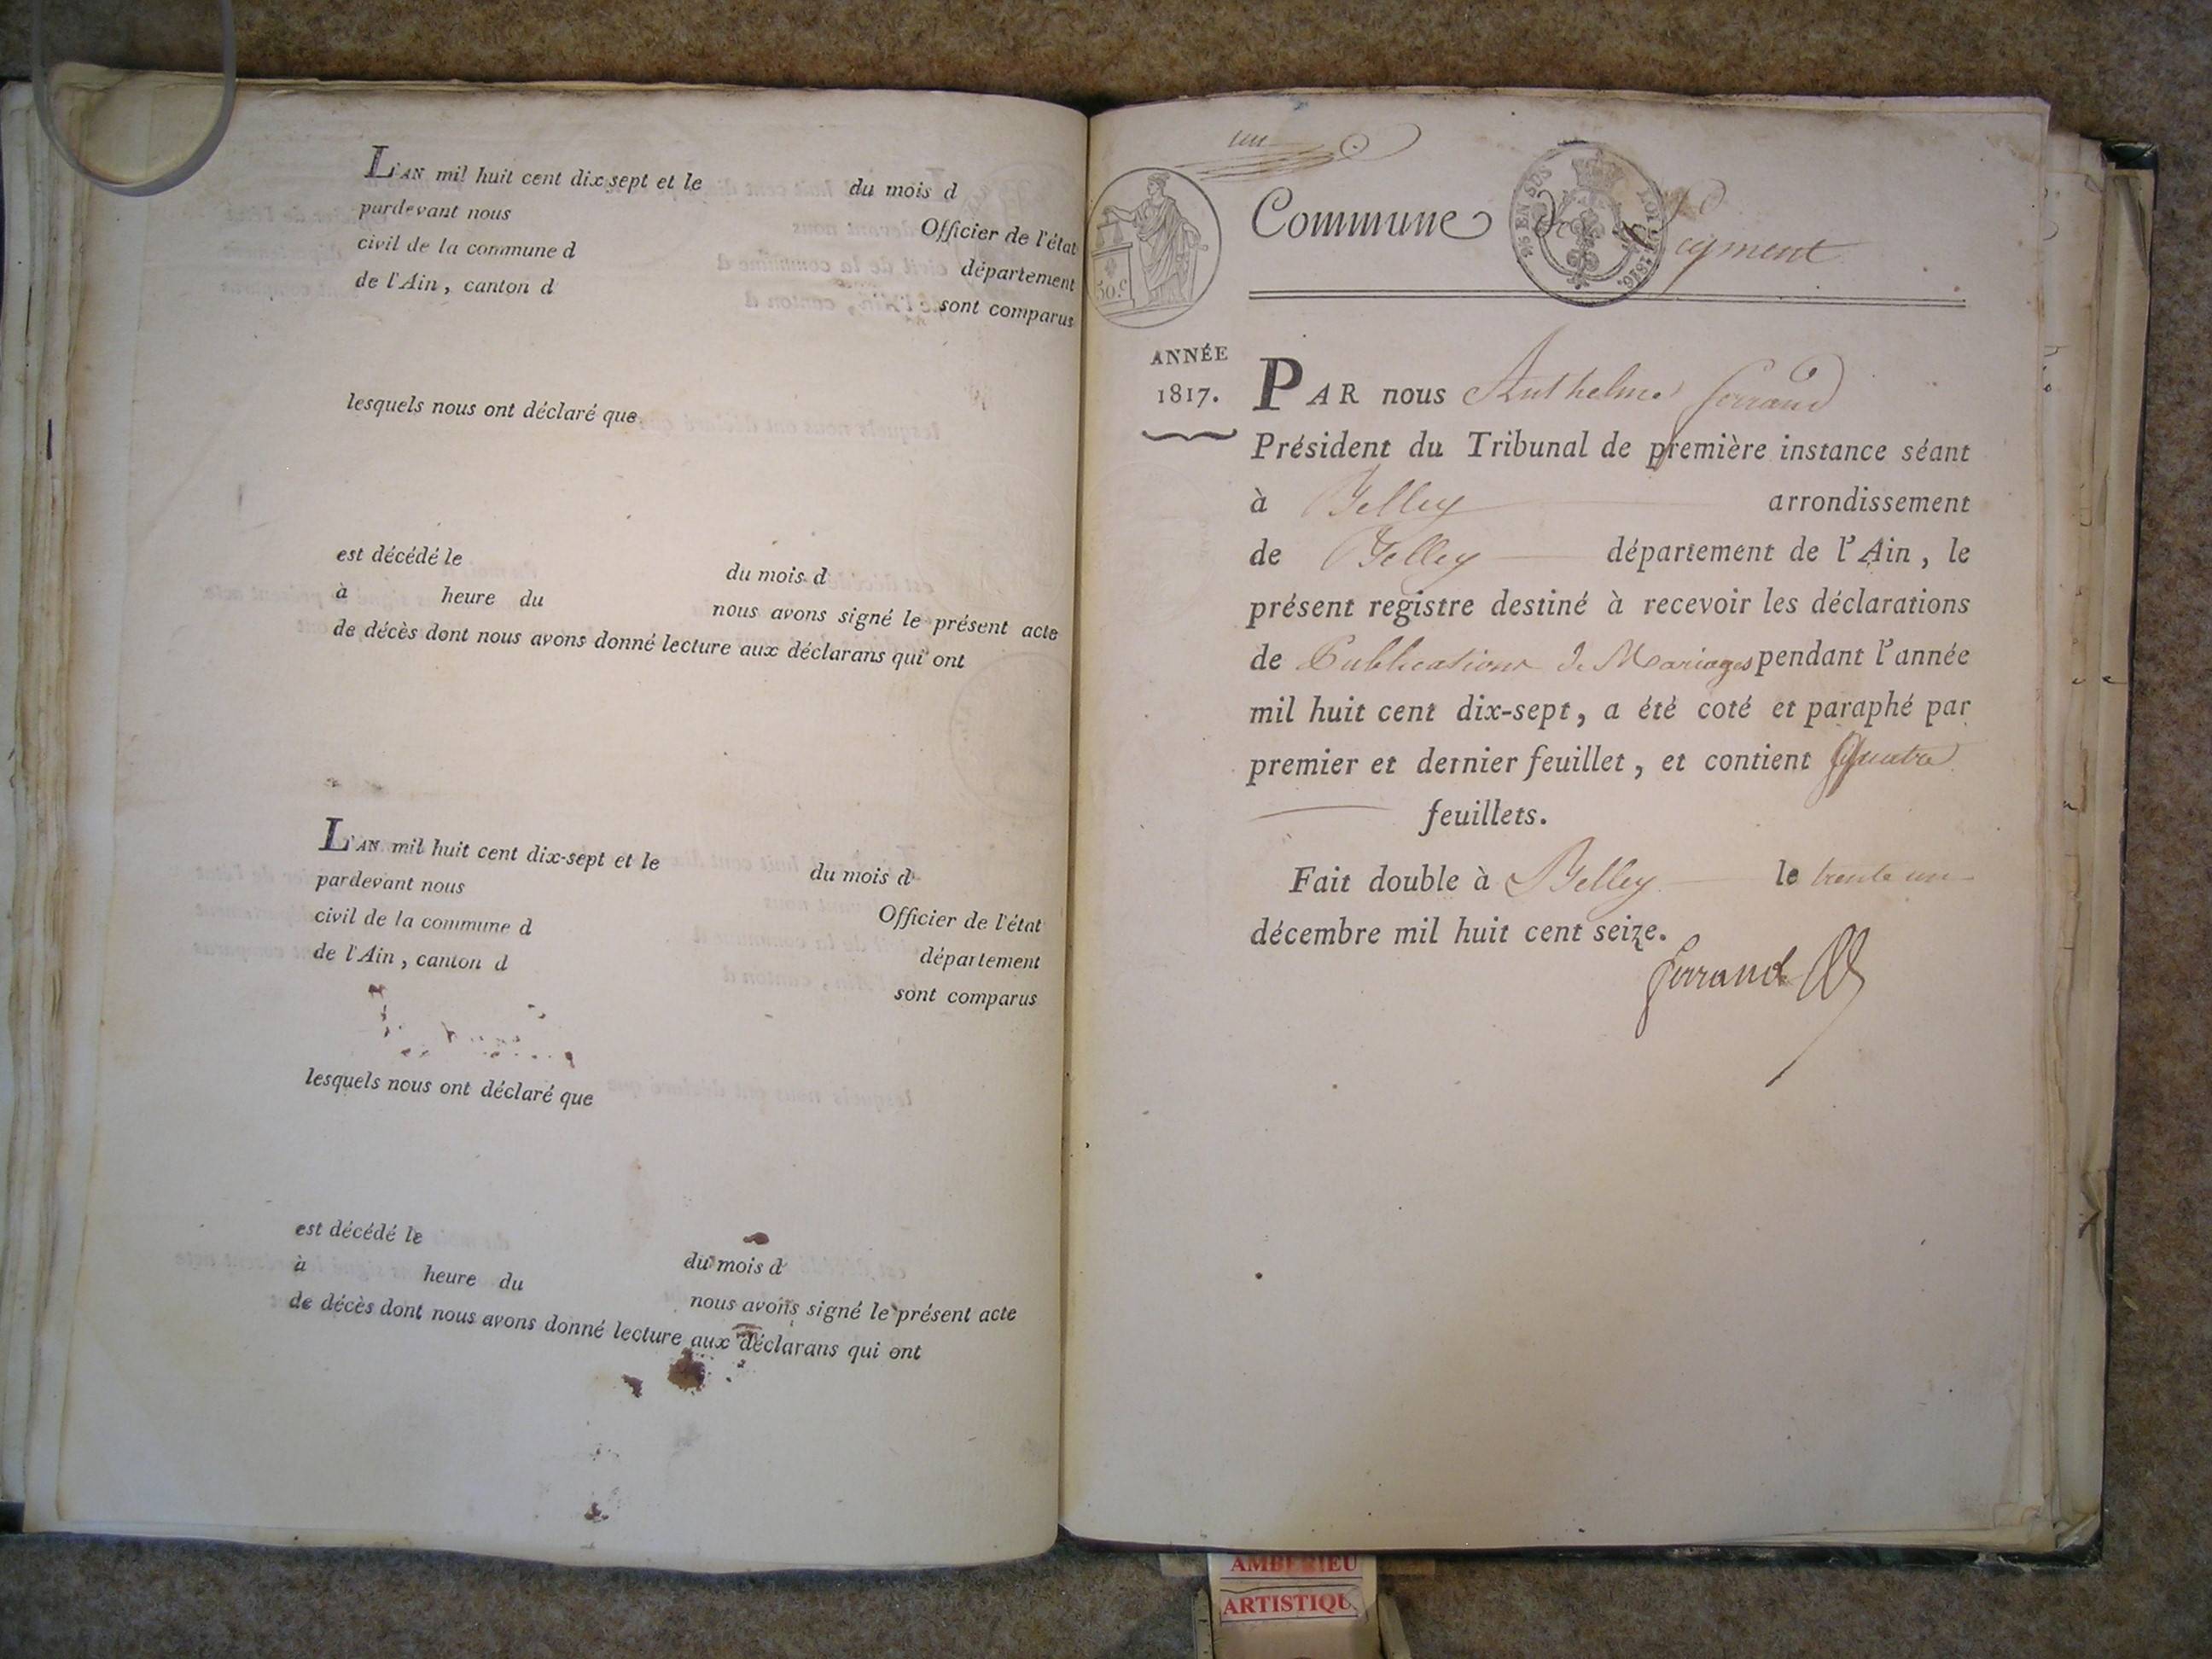 L'AN mil huit cent dix sept et le du mois d
pardevant nous Officier de l'état
civil de la commune d département
de l'Ain, canton d sont comparus
lesquels nous ont déclaré que
est décédé le du mois d
à heure du nous avons signé le présent acte
de décès dont nous avons donné lecture aux déclarans qui ont
L'AN mil huit cent dix-sept et le du mois d
pardevant nous Officier de l'état
civil de la commune d département
de l'Ain, canton d sont comparus
lesquels nous ont déclaré que
est décédé le du mois d
à heure du nous avons signé le présent acte
de décès dont nous avons donné lecture aux déclarans qui ont
un
50.c
2/10 EN SUS LOI DE 1816.
Commune De Leyment
ANNÉE
1817.
PAR nous Anthelme ferrand
Président du Tribunal de première instance séant
à Belley arrondissement
de Belley département de l'Ain, le
présent registre destiné à recevoir les déclarations
de Publications de Mariages pendant l'année
mil huit cent dix-sept, a été coté et paraphé par
premier et dernier feuillet, et contient Quatre
feuillets.
Fait double à Belley le trente un
décembre mil huit cent seize.
ferrand
AMBERIEU
ARTISTIQU